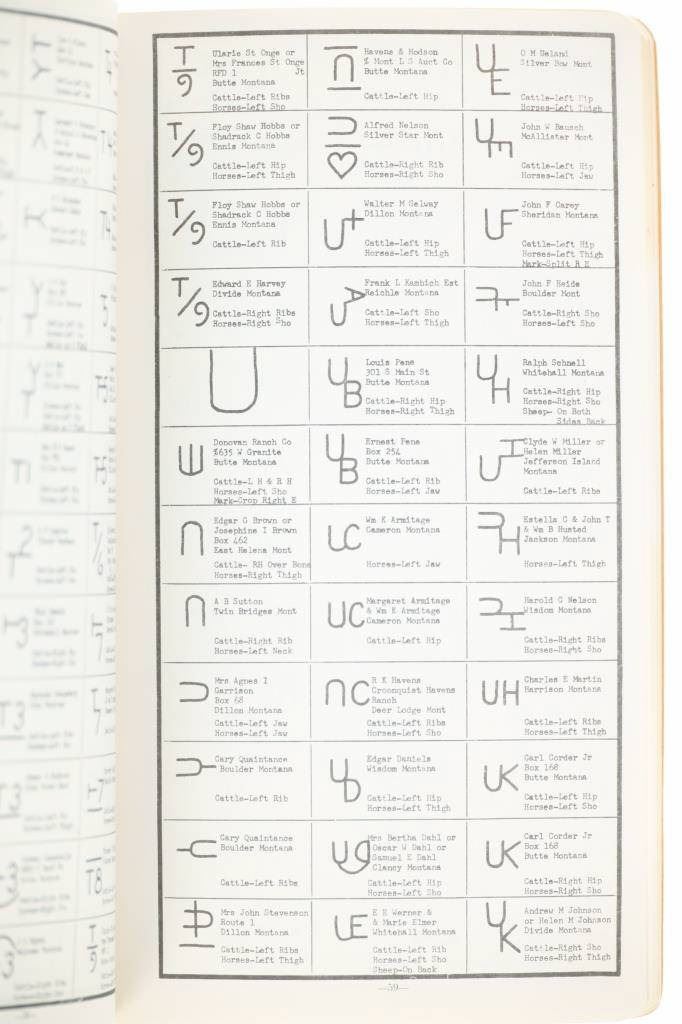 Ularie St Onge or
Mrs Frances St Onge
RFD 1 Jt
Butte Montana
Cattle-Left Ribs
Horses-Left Sho
Havens & Hodson
% Mont L S Auct Co
Butte Montana
Cattle-Left Hip
O M Ueland
Silver Bow Mont
Cattle-Left Hip
Horses-Left Thigh
Floy Shaw Hobbs or
Shadrack C Hobbs
Ennis Montana
Cattle-Left Hip
Horses-Left Thigh
Alfred Nelson
Silver Star Mont
Cattle-Right Rib
Horses-Right Sho
John W Bausch
McAllister Mont
Cattle-Left Hip
Horses-Left Jaw
Floy Shaw Hobbs or
Shadrack C Hobbs
Ennis Montana
Cattle-Left Rib
Walter M Selway
Dillon Montana
Cattle-Left Hip
Horses-Left Thigh
John F Carey
Sheridan Montana
Cattle-Left Hip
Horses-Left Thigh
Mark-Split R E
Edward E Harvey
Divide Montana
Cattle-Right Ribs
Horses-Right Sho
Frank L Kambich Est
Reichle Montana
Cattle-Left Sho
Horses-Left Thigh
John F Heide
Boulder Mont
Cattle-Right Sho
Horses-Left Sho
U
Louis Pene
301 S Main St
Butte Montana
Cattle-Right Hip
Horses-Right Thigh
Ralph Schnell
Whitehall Montana
Cattle-Right Hip
Horses-Right Sho
Sheep- On Both
Sides Back
Donovan Ranch Co
%635 W Granite
Butte Montana
Cattle-L H & R H
Horses-Left Sho
Mark-Crop Right E
Ernest Pene
Box 254
Butte Montana
Cattle-Left Rib
Horses-Left Jaw
Clyde W Miller or
Helen Miller
Jefferson Island
Montana
Cattle-Left Ribs
Edgar G Brown or
Josephine I Brown
Box 462
East Helena Mont
Cattle- RH Over Bone
Horses-Right Thigh
Wm K Armitage
Cameron Montana
Horses-Left Jaw
Estella C & John T
& Wm B Husted
Jackson Montana
Horses-Left Thigh
A B Sutton
Twin Bridges Mont
Cattle-Right Rib
Horses-Left Neck
Margaret Armitage
& Wm K Armitage
Cameron Montana
Cattle-Left Hip
Harold G Nelson
Wisdom Montana
Cattle-Right Ribs
Horses-Right Sho
Mrs Agnes I
Garrison
Box 68
Dillon Montana
Cattle-Left Jaw
Horses-Left Jaw
R K Havens
Croonquist Havens
Ranch
Deer Lodge Mont
Cattle-Left Ribs
Horses-Left Sho
Charles E Martin
Harrison Montana
Cattle-Left Ribs
Horses-Left Thigh
Gary Quaintance
Boulder Montana
Cattle-Left Rib
Edgar Daniels
Wisdom Montana
Cattle-Left Hip
Horses-Left Thigh
Carl Corder Jr
Box 168
Butte Montana
Cattle-Left Hip
Horses-Left Sho
Gary Quaintance
Boulder Montana
Cattle-Left Ribs
Mrs Bertha Dahl or
Oscar W Dahl or
Samuel E Dahl
Clancy Montana
Cattle-Left Hip
Horses-Left Sho
Carl Corder Jr
Box 168
Butte Montana
Cattle-Right Hip
Horses-Right Sho
Mrs John Stevenson
Route 1
Dillon Montana
Cattle-Left Ribs
Horses-Left Thigh
E E Werner &
& Marie Elmer
Whitehall Montana
Cattle-Left Rib
Horses-Left Sho
Sheep-On Back
Andrew M Johnson
or Helen M Johnson
Divide Montana
Cattle-Right Sho
Horses-Right Thigh
—59—